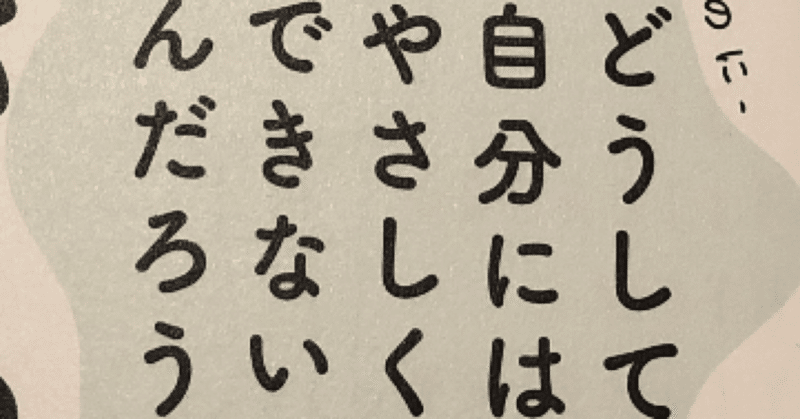 のにｰ
どうして
自分には
やさしく
できない
んだろう